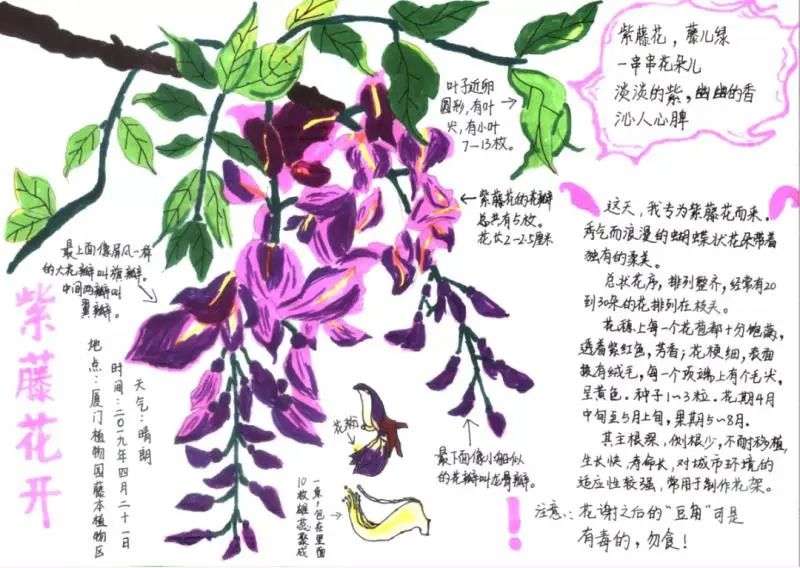 紫藤花，藤儿绿
一串串花朵儿
淡淡的紫，幽幽的香
沁人心脾
叶子近卵
圆形，有叶
尖，有小叶
7—13枚。
紫藤花的花瓣
总共有5枚。
花长2~2.5厘米
最上面像屏风一样
的大花瓣叫旗瓣。
中间两瓣叫
翼瓣。
紫藤花开
天气：晴朗
时间：二〇一九年四月二十一日
地点：厦门植物园藤本植物区
花萼
10枚雄蕊聚成
一束，包在里面
最下面像小船似
的花瓣叫龙骨瓣。
这天，我专为紫藤花而来。
秀气而浪漫的蝴蝶状花朵带着
独有的柔美。
总状花序，排列整齐，经常有20
到30朵的花排列在枝头。
花穗上每一个花苞都十分饱满，
透着紫红色，芳香；花梗细，表面
披有绒毛，每一个顶端上有个毛状，
呈黄色。种子1~3粒。花期4月
中旬至5月上旬，果期5~8月。
其主根深，侧根少，不耐移植，
生长快，寿命长，对城市环境的
适应性较强，常用于制作花架。
注意：花谢之后的“豆角”可是
有毒的，勿食！